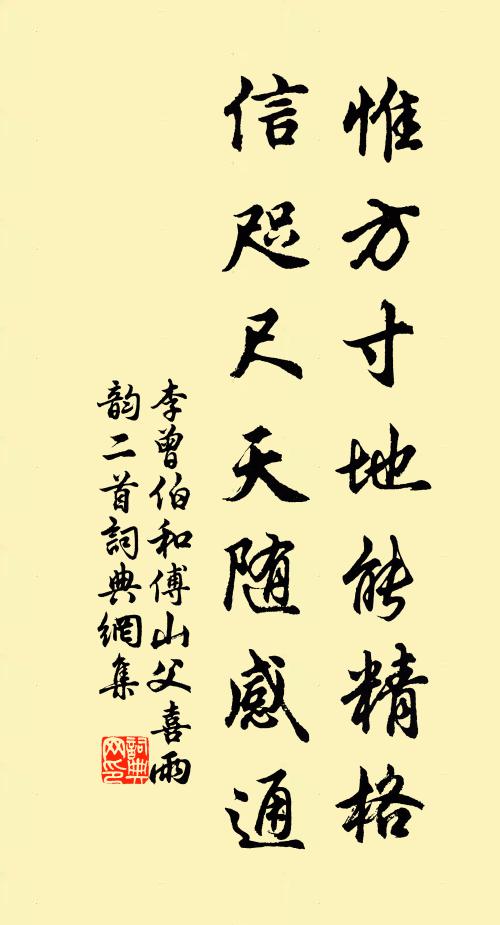 惟方寸地能精格
信咫尺天随感通
李曾伯和傅山父喜雨
韵二首詞典網集
詞典網印